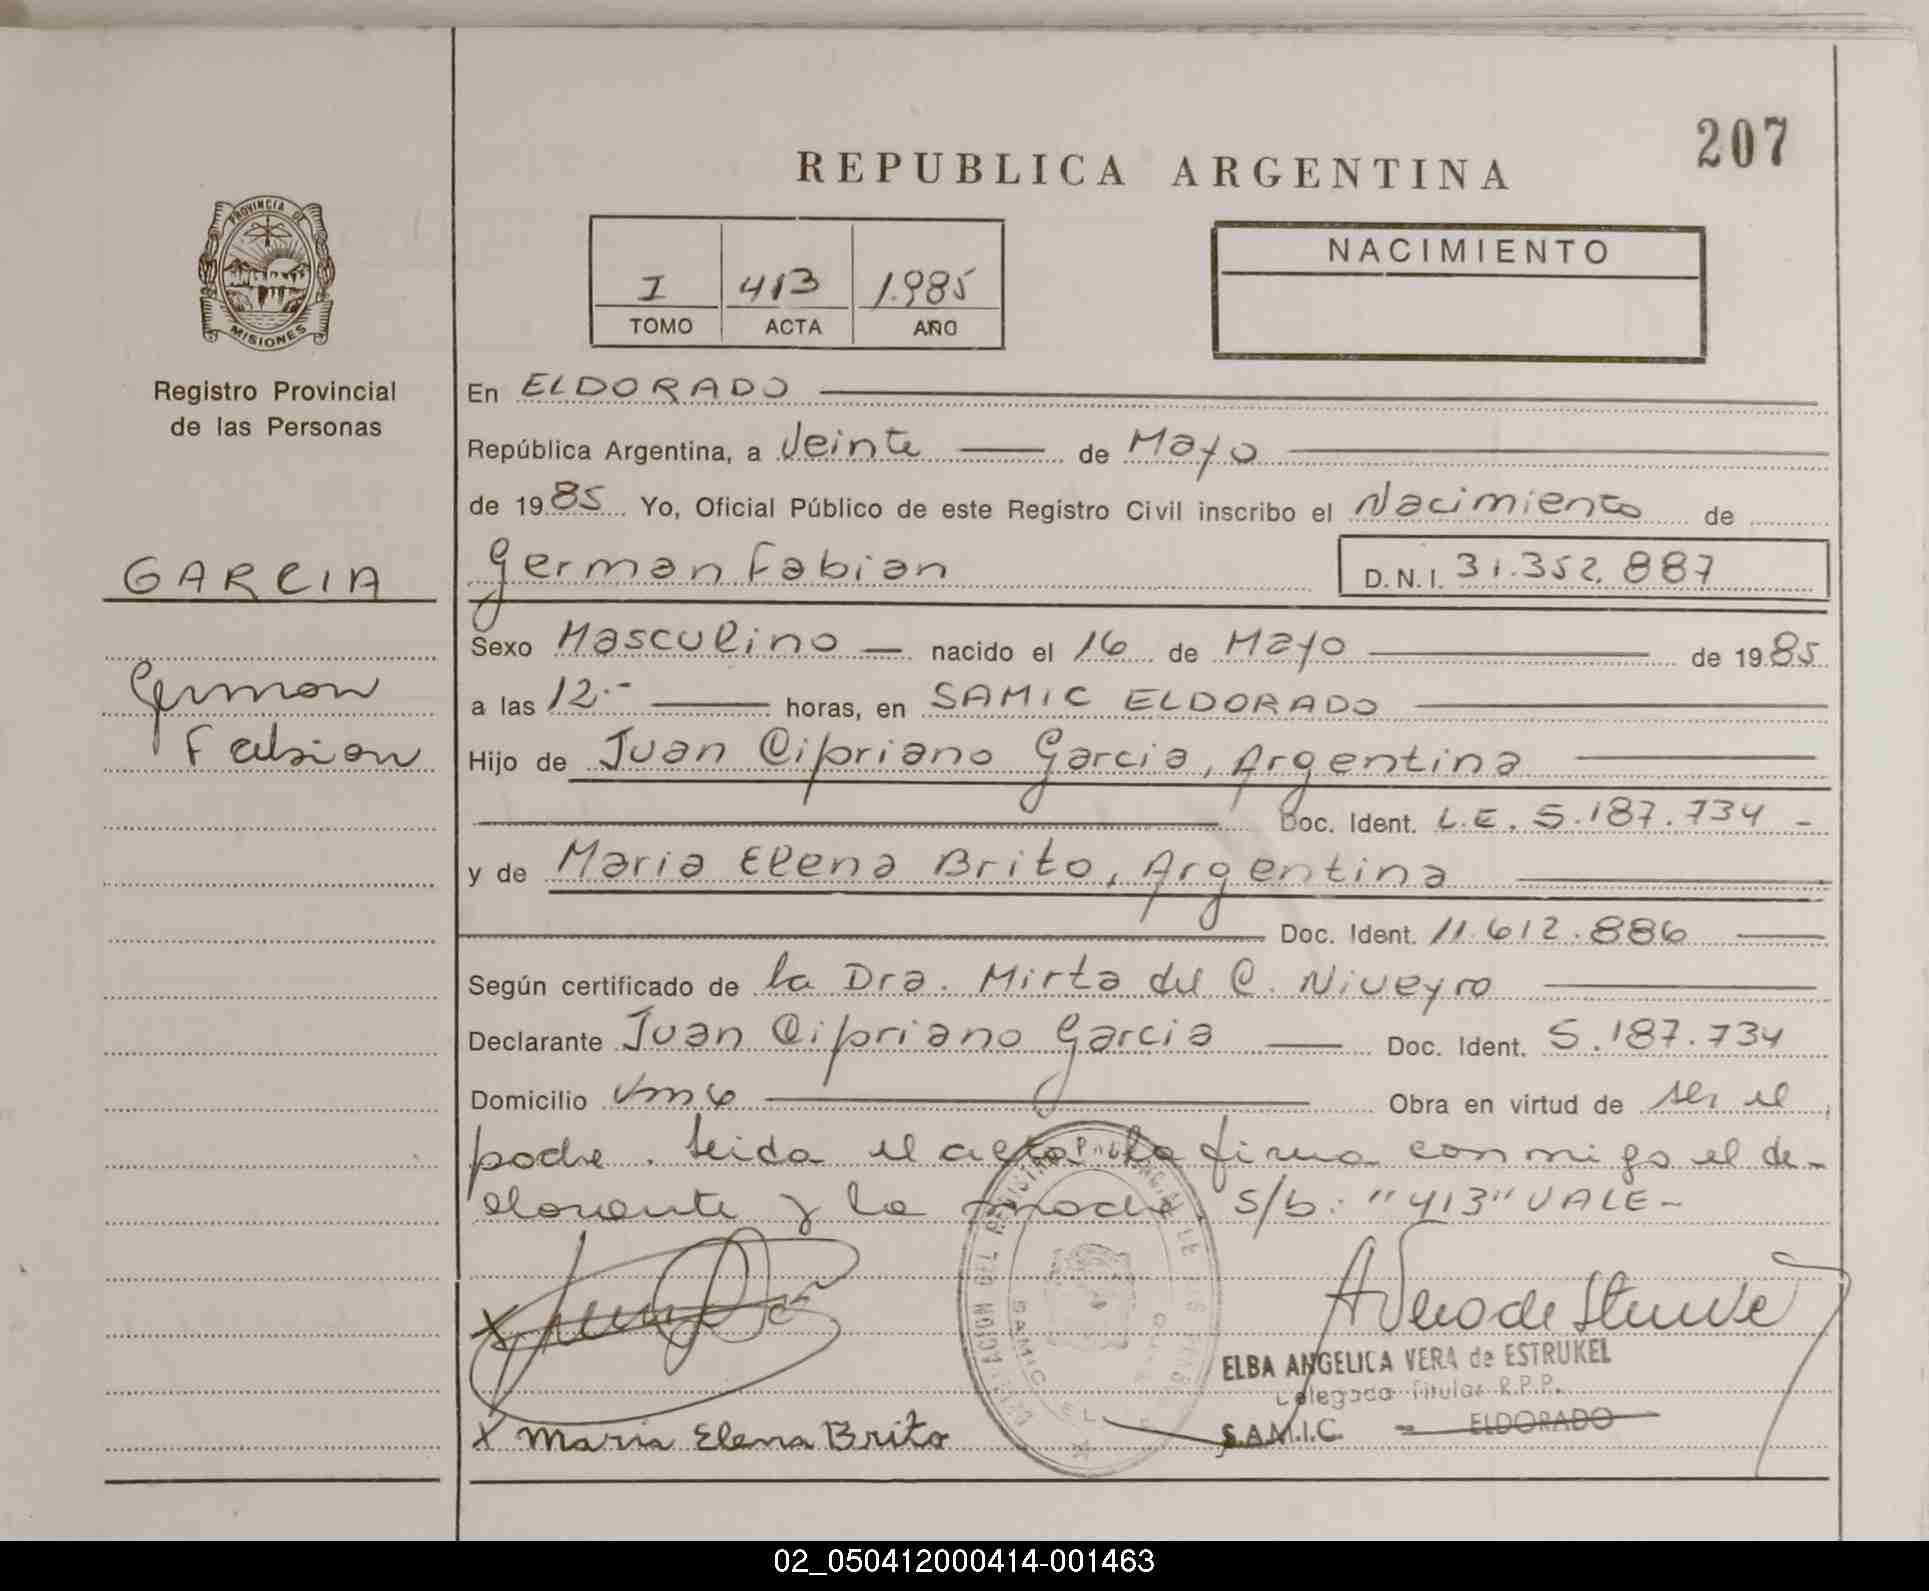 207
REPUBLICA ARGENTINA
PROVINCIA DE
MISIONES
Registro Provincial
de las Personas
I 413 1.985
TOMO ACTA AÑO
NACIMIENTO
En ELDORADO
República Argentina, a Veinte de Mayo
de 1985 Yo, Oficial Público de este Registro Civil inscribo el Nacimiento de
GARCIA
German Fabian D.N.I. 31.352.887
German
Fabian
Sexo Masculino nacido el 16 de Mayo de 1985
a las 12.- horas, en SAMIC ELDORADO
Hijo de Juan Cipriano Garcia, Argentina
Doc. Ident. L.E. 5.187.734 -
y de Maria Elena Brito, Argentina
Doc. Ident. 11.612.886
Según certificado de la Dra. Mirta del C. Niveyro
Declarante Juan Cipriano Garcia Doc. Ident. 5.187.734
Domicilio Obra en virtud de ser el
padre. Leida el acta la firma conmigo el de-
clarante y la madre. S/b: "413" VALE-
ELBA ANGELICA VERA de ESTRUKEL
Delegada Titular R.P.P.
S.A.M.I.C. ELDORADO
X Maria Elena Brito
02_050412000414-001463